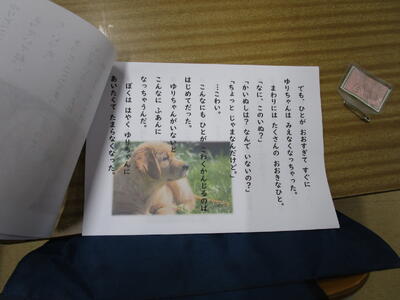 でも、ひとが おおすぎて すぐに
ゆりちゃんは みえなくなっちゃった。
まわりには たくさんの おおきなひと。
「なに、このいぬ？」
「かいぬしは？ なんで いないの？」
「ちょっと じゃまなんだけど。」
…こわい。
こんなにも ひとが こわくかんじるのは
はじめてだった。
ゆりちゃんがいないと
こんなに ふあんに
なっちゃうんだ。
ぼくは はやく ゆりちゃんに
あいたくて たまらなくなった。